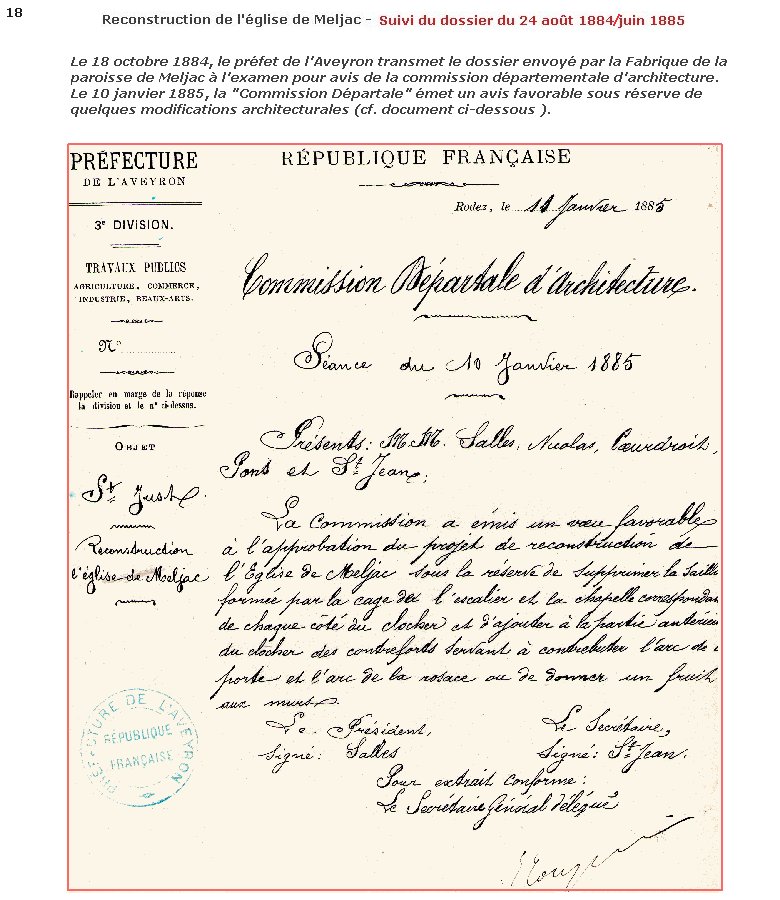 18
Reconstruction de l'église de Meljac - Suivi du dossier du 24 août 1884/juin 1885
Le 18 octobre 1884, le préfet de l'Aveyron transmet le dossier envoyé par la Fabrique de la
paroisse de Meljac à l'examen pour avis de la commission départementale d'architecture.
Le 10 janvier 1885, la "Commission Départale" émet un avis favorable sous réserve de
quelques modifications architecturales (cf. document ci-dessous ).
PRÉFECTURE
DE L'AVEYRON
3e DIVISION.
TRAVAUX PUBLICS
AGRICULTURE, COMMERCE,
INDUSTRIE, BEAUX-ARTS.
No
Rappeler en marge de la réponse
la division et le no ci-dessus.
OBJET
St Just
Reconstruction
l'église de Meljac
RÉPUBLIQUE FRANÇAISE
Rodez, le 11 Janvier 1885
Commission Départale d'Architecture.
Séance du 10 Janvier 1885
Présents: M.M. Salles, Nicolas, Coeurdroit,
Pons et St Jean;
La Commission a émis un voeu favorable
à l'approbation du projet de reconstruction de
l'Eglise de Meljac sous la réserve de supprimer la saillie
formée par la cage de l'escalier et la chapelle correspondan
de chaque côté du clocher et d'ajouter à la partie antérieure
du clocher des contreforts servant à contrebuter l'arc de
porte et l'arc de la rosace ou de donner un fruit
aux murs.
Le Président,
Signé: Salles
Le Secrétaire,
Signé: St Jean.
Pour extrait conforme:
Le Secrétaire Général délégué
PRÉFECTURE DE L'AVEYRON
RÉPUBLIQUE
FRANÇAISE